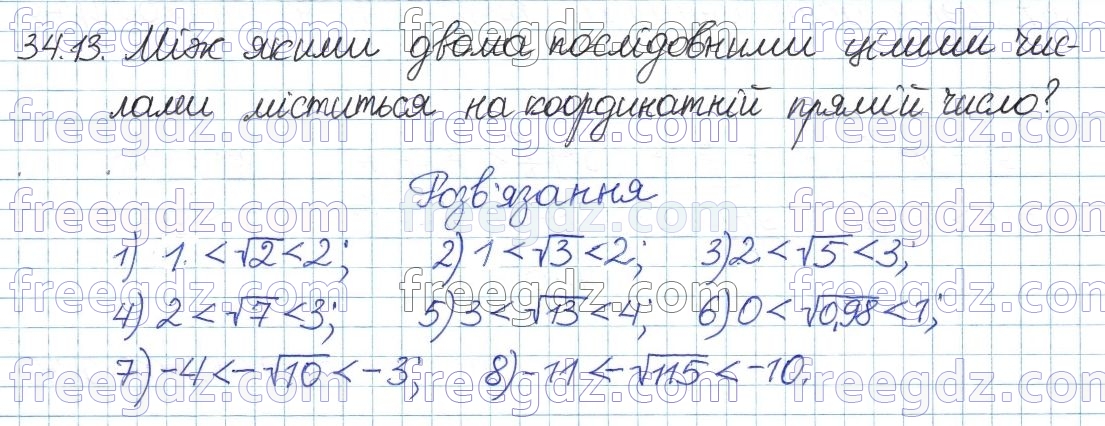 34.13. Між якими двома послідовними цілими чис-
лами міститься на координатній прямій число?
Розв'язання
1) 1 < √2 < 2; 2) 1 < √3 < 2; 3) 2 < √5 < 3;
4) 2 < √7 < 3; 5) 3 < √13 < 4; 6) 0 < √0,98 < 1;
7) -4 < -√10 < -3; 8) -11 < -√115 < -10.
freegdz.com